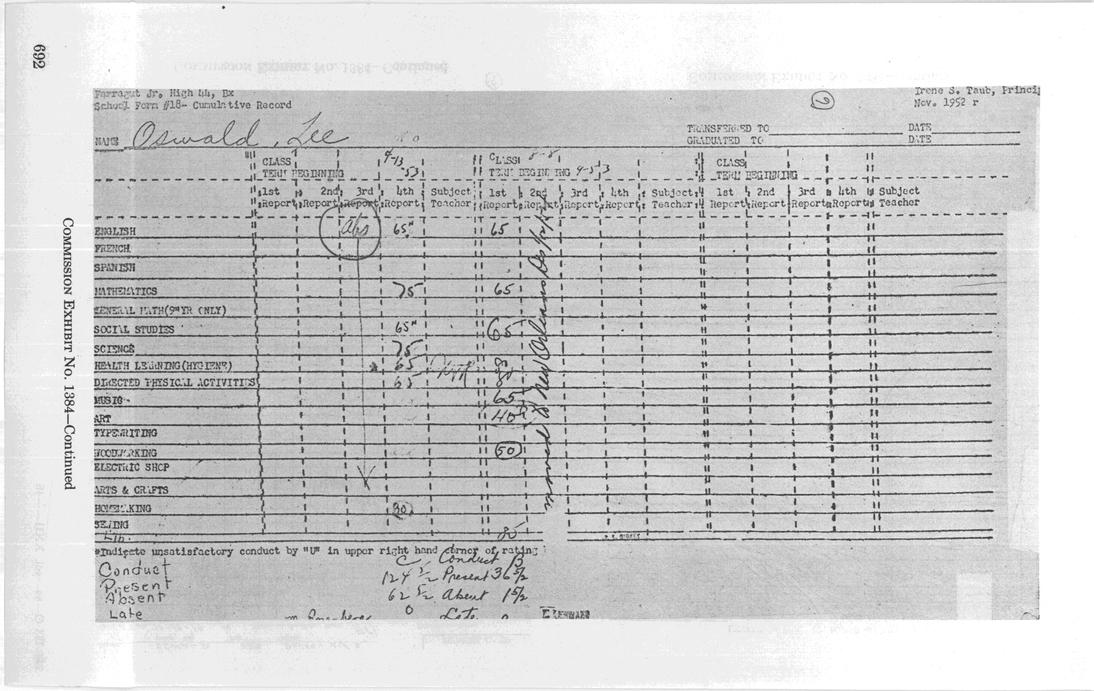 692
COMMISSION EXHIBIT No. 1384—Continued
Farragut Jr. High 44, Bx
School Form #18- Cumulative Record
Irene S. Taub, Princip
Nov. 1952 r
NAME Oswald, Lee
TRANSFERRED TO DATE
GRADUATED TO DATE
CLASS CLASS 8-8 CLASS
TERM BEGINNING 53 TERM BEGINNING 9-53 TERM BEGINNING
1st Report 2nd Report 3rd Report 4th Report Subject Teacher 1st Report 2nd Report 3rd Report 4th Report Subject Teacher 1st Report 2nd Report 3rd Report 4th Report Subject Teacher
Abs
ENGLISH 65" 65
FRENCH
SPANISH
MATHEMATICS 75 65
GENERAL MATH(9"YR ONLY)
SOCIAL STUDIES 65" 65
SCIENCE 75
HEALTH LEARNING(HYGIENE) 65 80
DIRECTED PHYSICAL ACTIVITIES 65 80
MUSIC 65
ART 40
TYPEWRITING
WOODWORKING 50
ELECTRIC SHOP
ARTS & CRAFTS
HOMEMAKING 90
SEWING
Lib. 85
moved to New Orleans
*Indicate unsatisfactory conduct by "U" in upper right hand corner of rating
Conduct C Conduct B
Present 124 5/2 Present 36 5/2
Absent 62 5/2 Absent 1 5/2
Late 0 Late